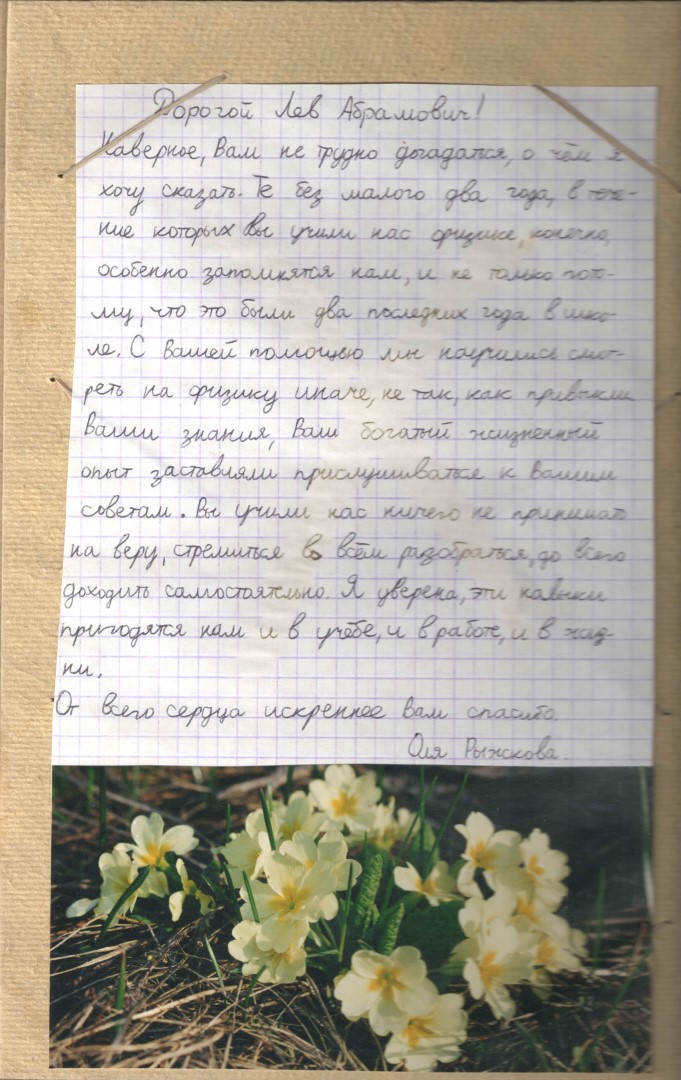 Дорогой Лев Абрамович!
Наверное, Вам не трудно догадаться, о чём я
хочу сказать. Те без малого два года, в тече-
ние которых Вы учили нас физике, конечно,
особенно запомнятся нам, и не только пото-
му, что это были два последних года в шко-
ле. С Вашей помощью мы научились смот-
реть на физику иначе, не так, как привыкли.
Ваши знания, Ваш богатый жизненный
опыт заставляли прислушиваться к Вашим
советам. Вы учили нас ничего не принимать
на веру, стремиться во всём разобраться, до всего
доходить самостоятельно. Я уверена, эти навыки
пригодятся нам и в учёбе, и в работе, и в жиз-
ни.
От всего сердца искреннее Вам спасибо.
Оля Рыжкова.